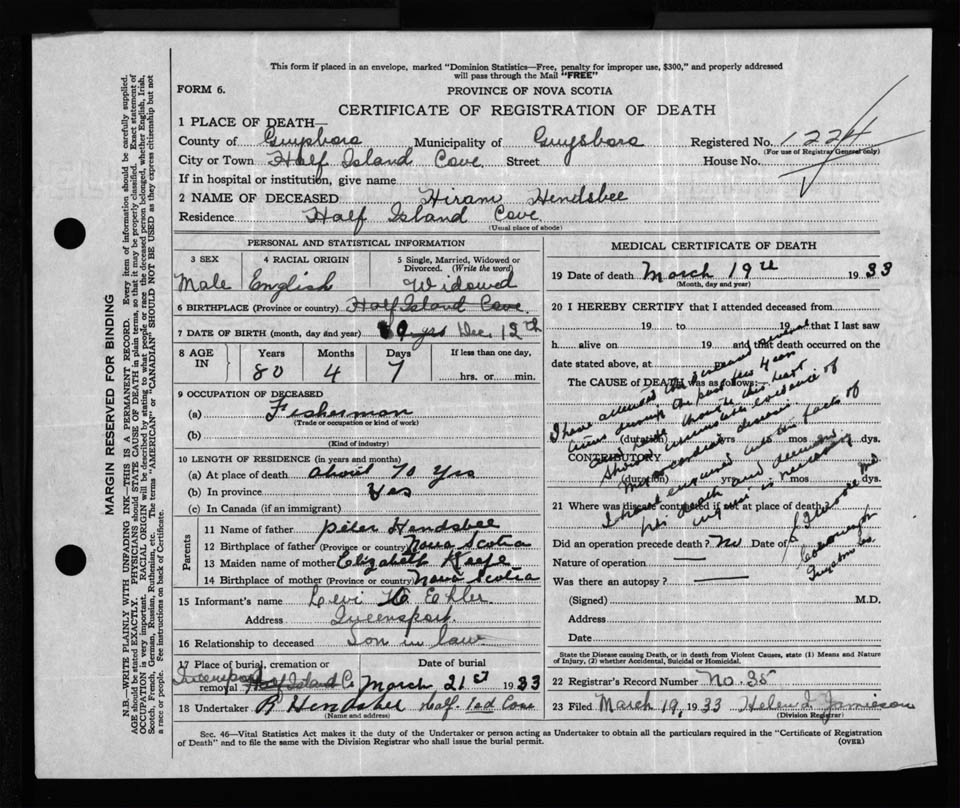 This form if placed in an envelope, marked "Dominion Statistics—Free, penalty for improper use, $300," and properly addressed
will pass through the Mail "FREE"
FORM 6.
PROVINCE OF NOVA SCOTIA
CERTIFICATE OF REGISTRATION OF DEATH
1 PLACE OF DEATH—
County of Guysboro Municipality of Guysboro Registered No. 1224
(For use of Registrar General only)
City or Town Half Island Cove Street House No.
If in hospital or institution, give name
2 NAME OF DECEASED Hiram Hendsbee
Residence Half Island Cove
(Usual place of abode)
PERSONAL AND STATISTICAL INFORMATION
3 SEX 4 RACIAL ORIGIN 5 Single, Married, Widowed or
Divorced. (Write the word)
Male English Widowed
6 BIRTHPLACE (Province or country) Half Island Cove
7 DATE OF BIRTH (month, day and year) yrs Dec 12th
8 AGE IN Years Months Days If less than one day,
80 4 7 hrs. or min.
9 OCCUPATION OF DECEASED
(a) Fisherman
(Trade or occupation or kind of work)
(b)
(Kind of industry)
10 LENGTH OF RESIDENCE (in years and months)
(a) At place of death about 70 Yrs
(b) In province Yes
(c) In Canada (if an immigrant)
Parents
11 Name of father Peter Hendsbee
12 Birthplace of father (Province or country) Nova Scotia
13 Maiden name of mother Elizabeth
14 Birthplace of mother (Province or country) Nova Scotia
15 Informant's name Levi
Address Queensport
16 Relationship to deceased Son in law
17 Place of burial, cremation or Date of burial
removal Queensport Half Island C. March 21st 1933
18 Undertaker R Hendsbee Half Isd Cove
(Name and address)
MEDICAL CERTIFICATE OF DEATH
19 Date of death March 19th 1933
(Month, day and year)
20 I HEREBY CERTIFY that I attended deceased from
19 to 19 that I last saw
h alive on 19 and that death occurred on the
date stated above, at
The CAUSE of DEATH was as follows:—
(duration) yrs mos dys.
CONTRIBUTORY
(duration) yrs mos dys.
I have attended the deceased several
times during the past few years
21 Where was disease contracted if not at place of death?
Did an operation precede death? No Date of
Nature of operation
Was there an autopsy?
(Signed) M.D.
Address
Date
State the Disease causing Death, or in death from Violent Causes, state (1) Means and Nature
of Injury, (2) whether Accidental, Suicidal or Homicidal.
22 Registrar's Record Number No. 35
23 Filed March 19, 1933 Helen I. Jamieson
(Division Registrar)
Sec. 46—Vital Statistics Act makes it the duty of the Undertaker or person acting as Undertaker to obtain all the particulars required in the "Certificate of Registration
of Death" and to file the same with the Division Registrar who shall issue the burial permit.
(OVER)
MARGIN RESERVED FOR BINDING
N.B.—WRITE PLAINLY WITH UNFADING INK—THIS IS A PERMANENT RECORD. Every item of information should be carefully supplied.
AGE should be stated EXACTLY. PHYSICIANS should STATE CAUSE OF DEATH in plain terms, so that it may be properly classified. Exact statement of
OCCUPATION is very important. RACIAL ORIGIN will be described by stating to what people or race the deceased person belonged, whether English, Irish,
Scotch, French, German, Russian, Ruthenian, etc. The terms "AMERICAN" or "CANADIAN" SHOULD NOT BE USED as they express citizenship but not
a race or people. Fee instructions on back of Certificate.